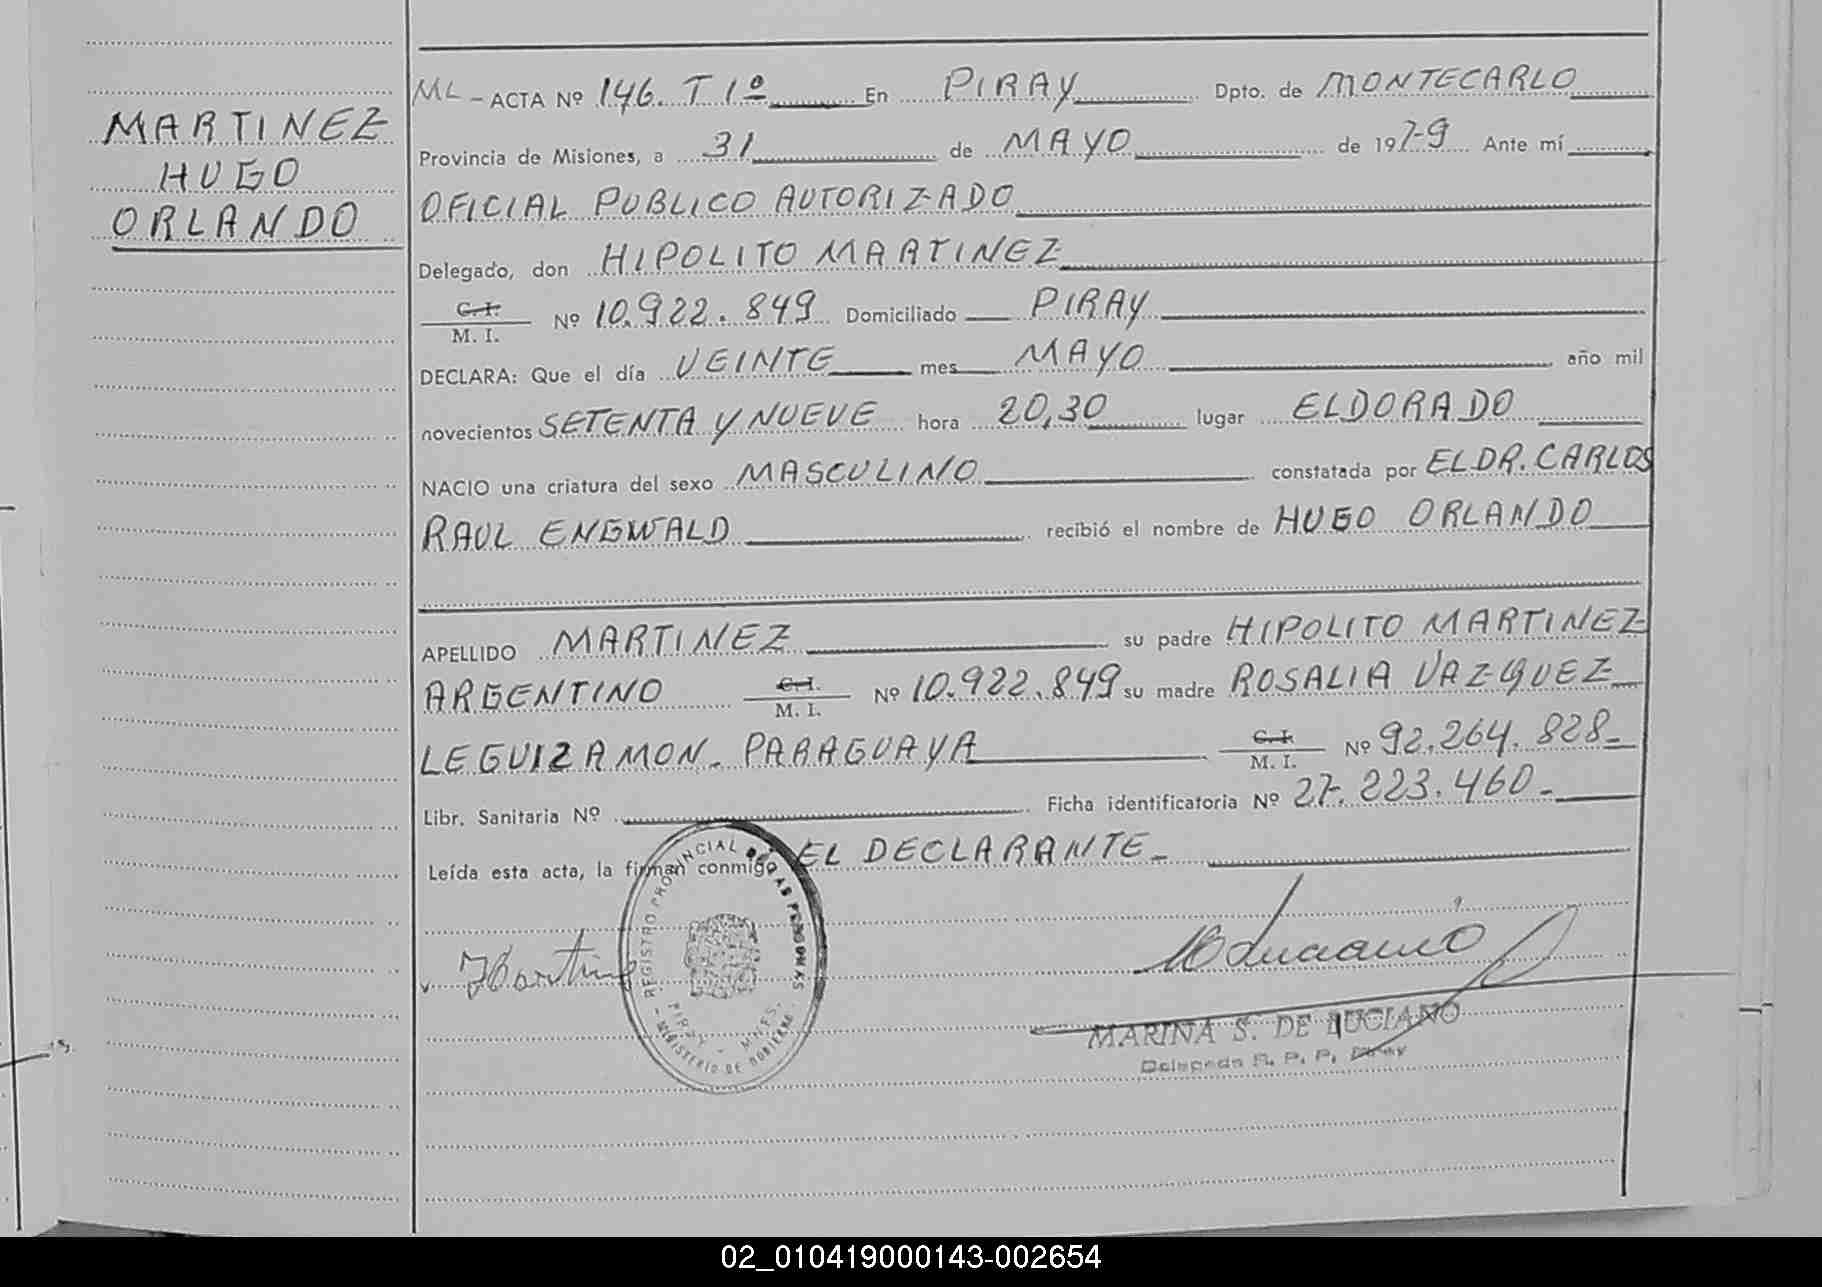 MARTINEZ
HUGO
ORLANDO
ML - ACTA Nº 146. T 1º En PIRAY Dpto. de MONTECARLO
Provincia de Misiones, a 31 de MAYO de 1979 Ante mí
OFICIAL PUBLICO AUTORIZADO
Delegado, don HIPOLITO MARTINEZ
C. I.
M. I. Nº 10.922.849 Domiciliado PIRAY
DECLARA: Que el día VEINTE mes MAYO año mil
novecientos SETENTA Y NUEVE hora 20,30 lugar ELDORADO
NACIO una criatura del sexo MASCULINO constatada por EL DR. CARLOS
RAUL ENGWALD recibió el nombre de HUGO ORLANDO
APELLIDO MARTINEZ su padre HIPOLITO MARTINEZ
ARGENTINO C. I. M. I. Nº 10.922.849 su madre ROSALIA VAZQUEZ
LEGUIZAMON - PARAGUAYA C. I. M. I. Nº 92.264.828-
Libr. Sanitaria Nº Ficha identificatoria Nº 27.223.460-
Leída esta acta, la firman conmigo EL DECLARANTE-
REGISTRO PROVINCIAL DE LAS PERSONAS
PIRAY - MNES.
- MINISTERIO DE GOBIERNO
MARINA S. DE LUCIANO
Delegada R. P. P. Piray
02_010419000143-002654